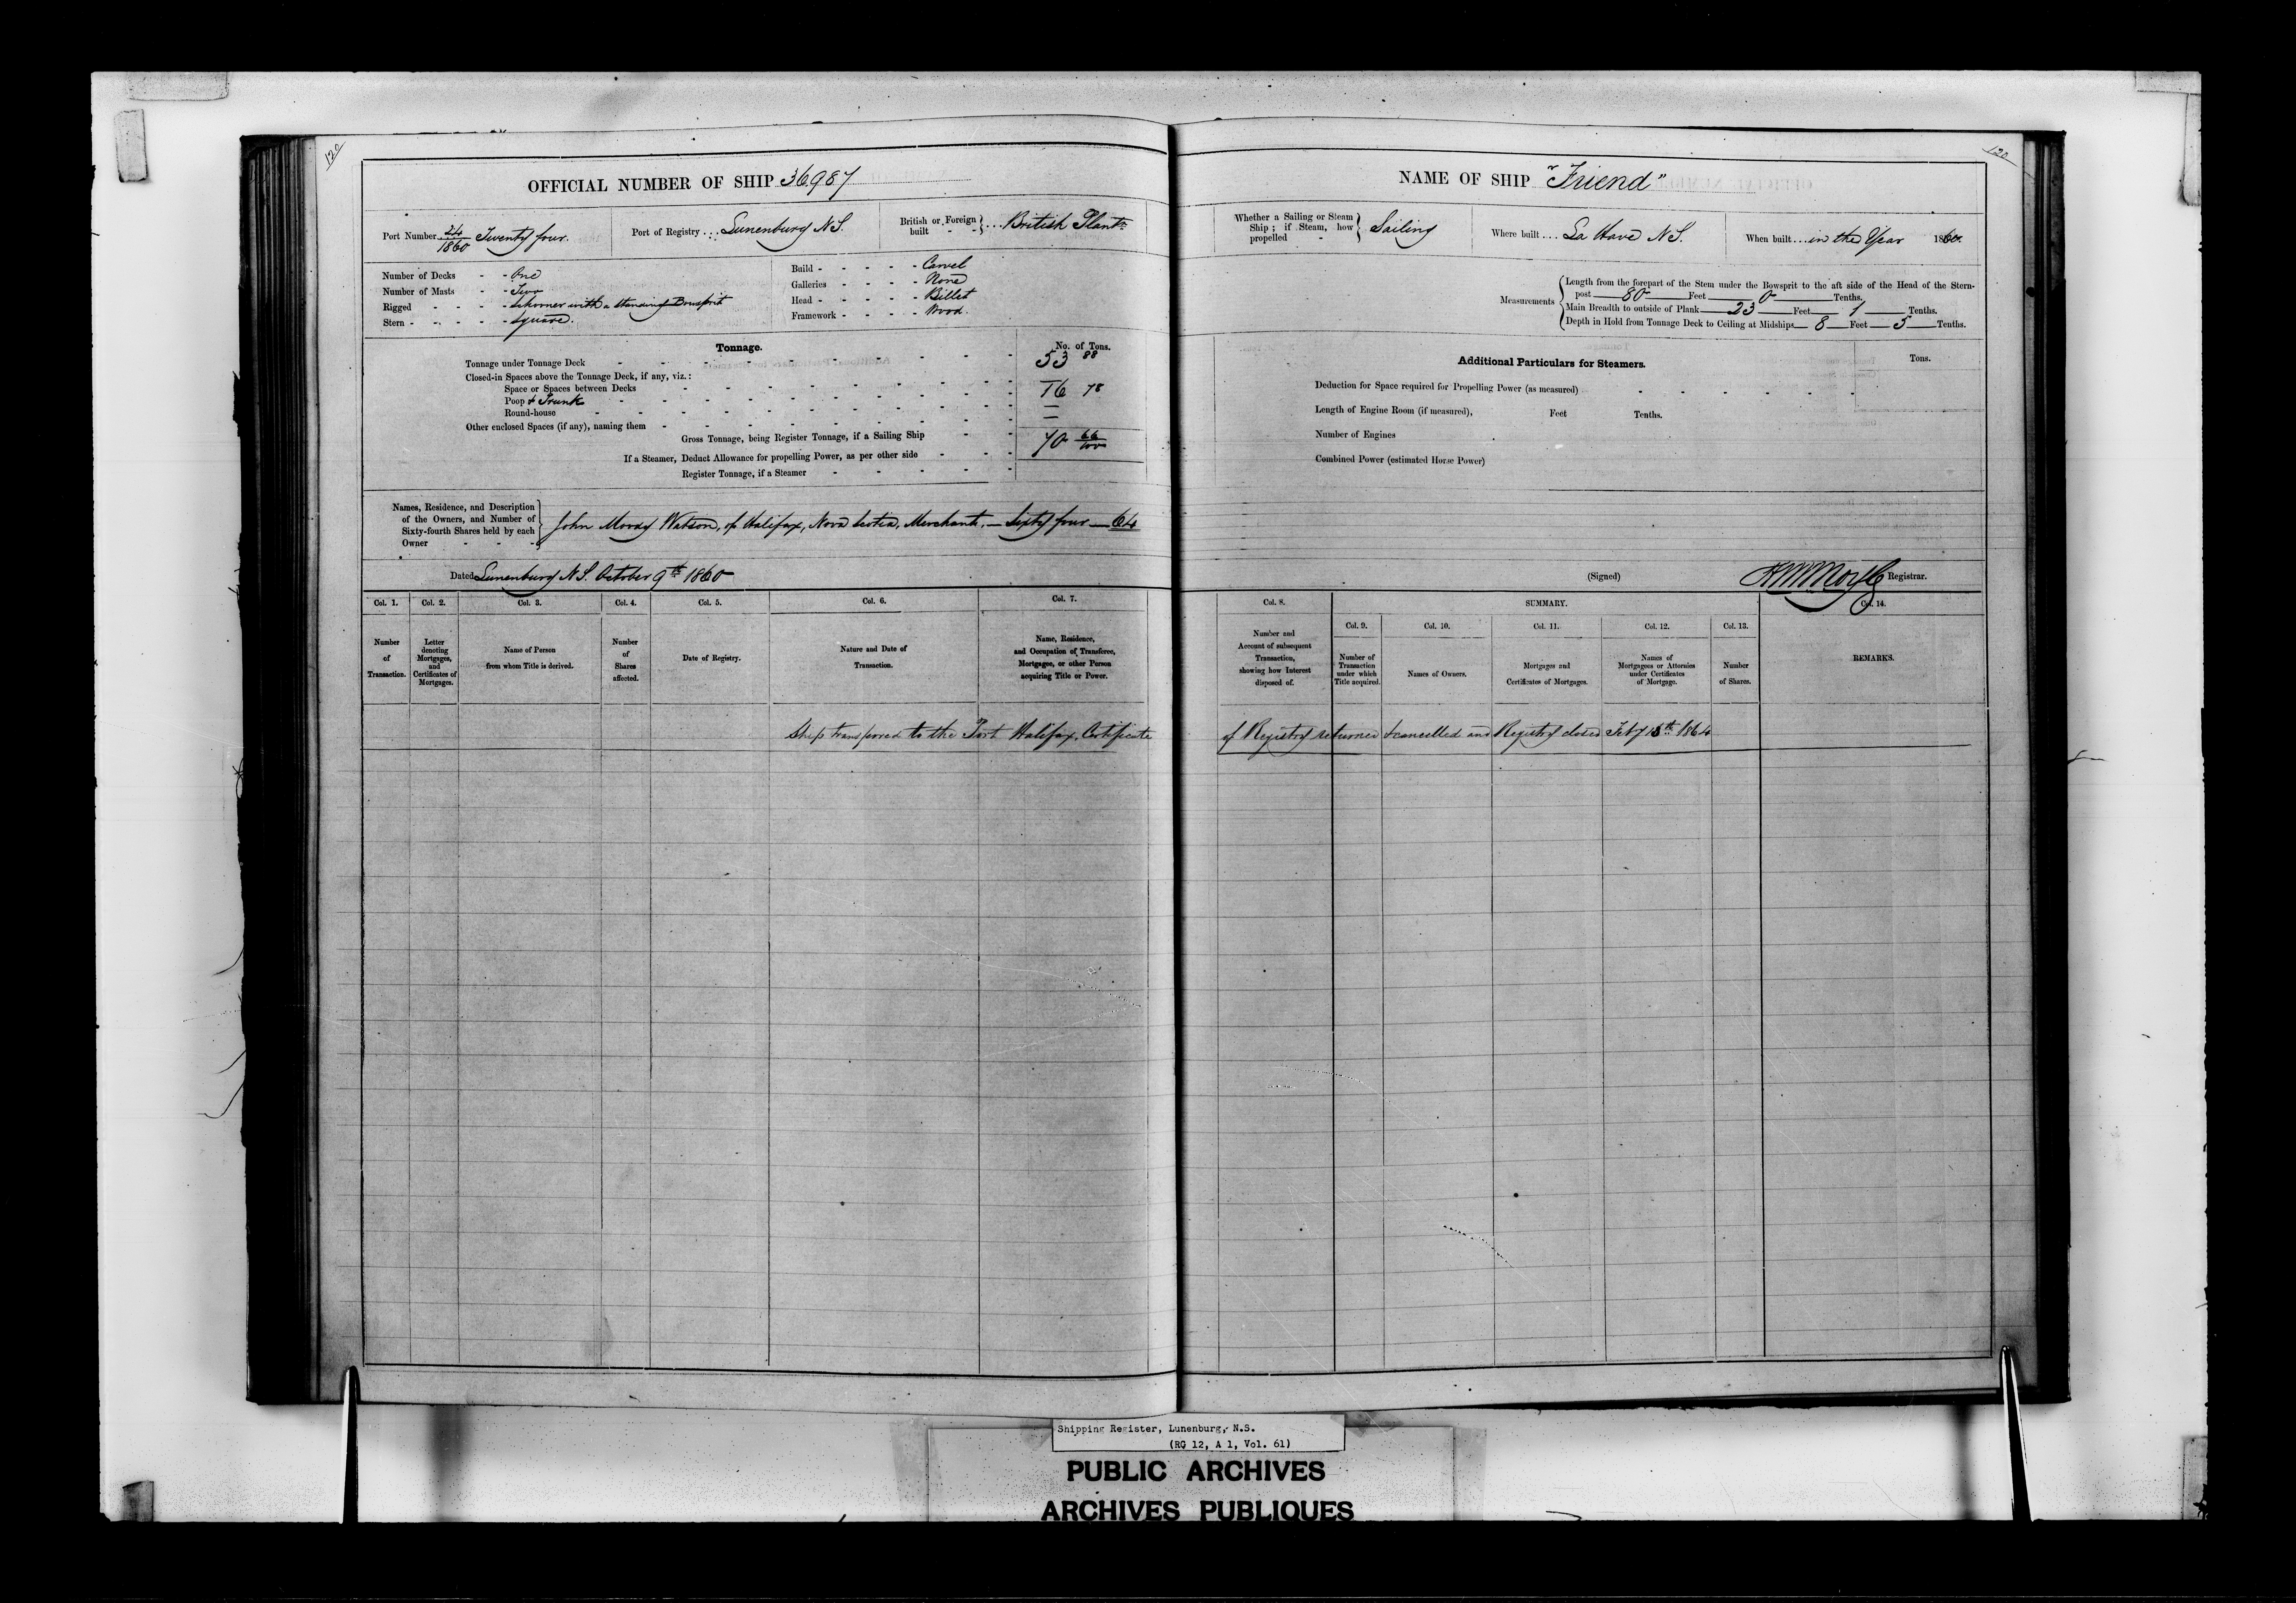 120
120
OFFICIAL NUMBER OF SHIP 36,987
Port Number 24/1860 Twenty four.
Port of Registry... Lunenburg N S.
British or Foreign built - - } ... British Plantn
Number of Decks - - One
Number of Masts - - Two
Rigged - - - - Schooner with a Standing Bowsprit
Stern - - - - - Square.
Build - - - - - Carvel
Galleries - - - - None
Head - - - - - Billet
Framework - - - - Wood.
Tonnage.
No. of Tons.
Tonnage under Tonnage Deck - - - 53 88
Closed-in Spaces above the Tonnage Deck, if any, viz.:
Space or Spaces between Decks - - -
Poop & Trunk - - - 16 78
Round-house - - -
Other enclosed Spaces (if any), naming them - - -
Gross Tonnage, being Register Tonnage, if a Sailing Ship - - 70 66/100
If a Steamer, Deduct Allowance for propelling Power, as per other side - - -
Register Tonnage, if a Steamer - - - - -
Names, Residence, and Description
of the Owners, and Number of
Sixty-fourth Shares held by each
Owner - - -
John Moody Watson, of Halifax, Nova Scotia, Merchant, — Sixty four — 64
Dated Lunenburg N S. October 9th 1860
Col. 1. Col. 2. Col. 3. Col. 4. Col. 5. Col. 6. Col. 7.
Number of Transaction.
Letter denoting Mortgages, and Certificates of Mortgages.
Name of Person from whom Title is derived.
Number of Shares affected.
Date of Registry.
Nature and Date of Transaction.
Name, Residence, and Occupation of Transferee, Mortgagee, or other Person acquiring Title or Power.
Ship transferred to the Port Halifax, Certificate
NAME OF SHIP "Friend"
Whether a Sailing or Steam Ship; if Steam, how propelled - } Sailing
Where built.... La Have N S.
When built....in the Year 1860.
Measurements
Length from the forepart of the Stem under the Bowsprit to the aft side of the Head of the Stern-
post 80 Feet 0 Tenths.
Main Breadth to outside of Plank 23 Feet 1 Tenths.
Depth in Hold from Tonnage Deck to Ceiling at Midships 8 Feet 5 Tenths.
Additional Particulars for Steamers.
Tons.
Deduction for Space required for Propelling Power (as measured) - - - - - -
Length of Engine Room (if measured), Feet Tenths.
Number of Engines
Combined Power (estimated Horse Power)
(Signed) Registrar.
Col. 8. SUMMARY. Col. 14.
Col. 9. Col. 10. Col. 11. Col. 12. Col. 13.
Number and Account of subsequent Transaction, showing how Interest disposed of.
Number of Transaction under which Title acquired.
Names of Owners.
Mortgages and Certificates of Mortgages.
Names of Mortgagees or Attornies under Certificates of Mortgage.
Number of Shares.
REMARKS.
of Registry returned & cancelled and Registry closed Feby 18th 1864
Shipping Register, Lunenburg, N.S.
(RG 12, A 1, Vol. 61)
PUBLIC ARCHIVES
ARCHIVES PUBLIQUES